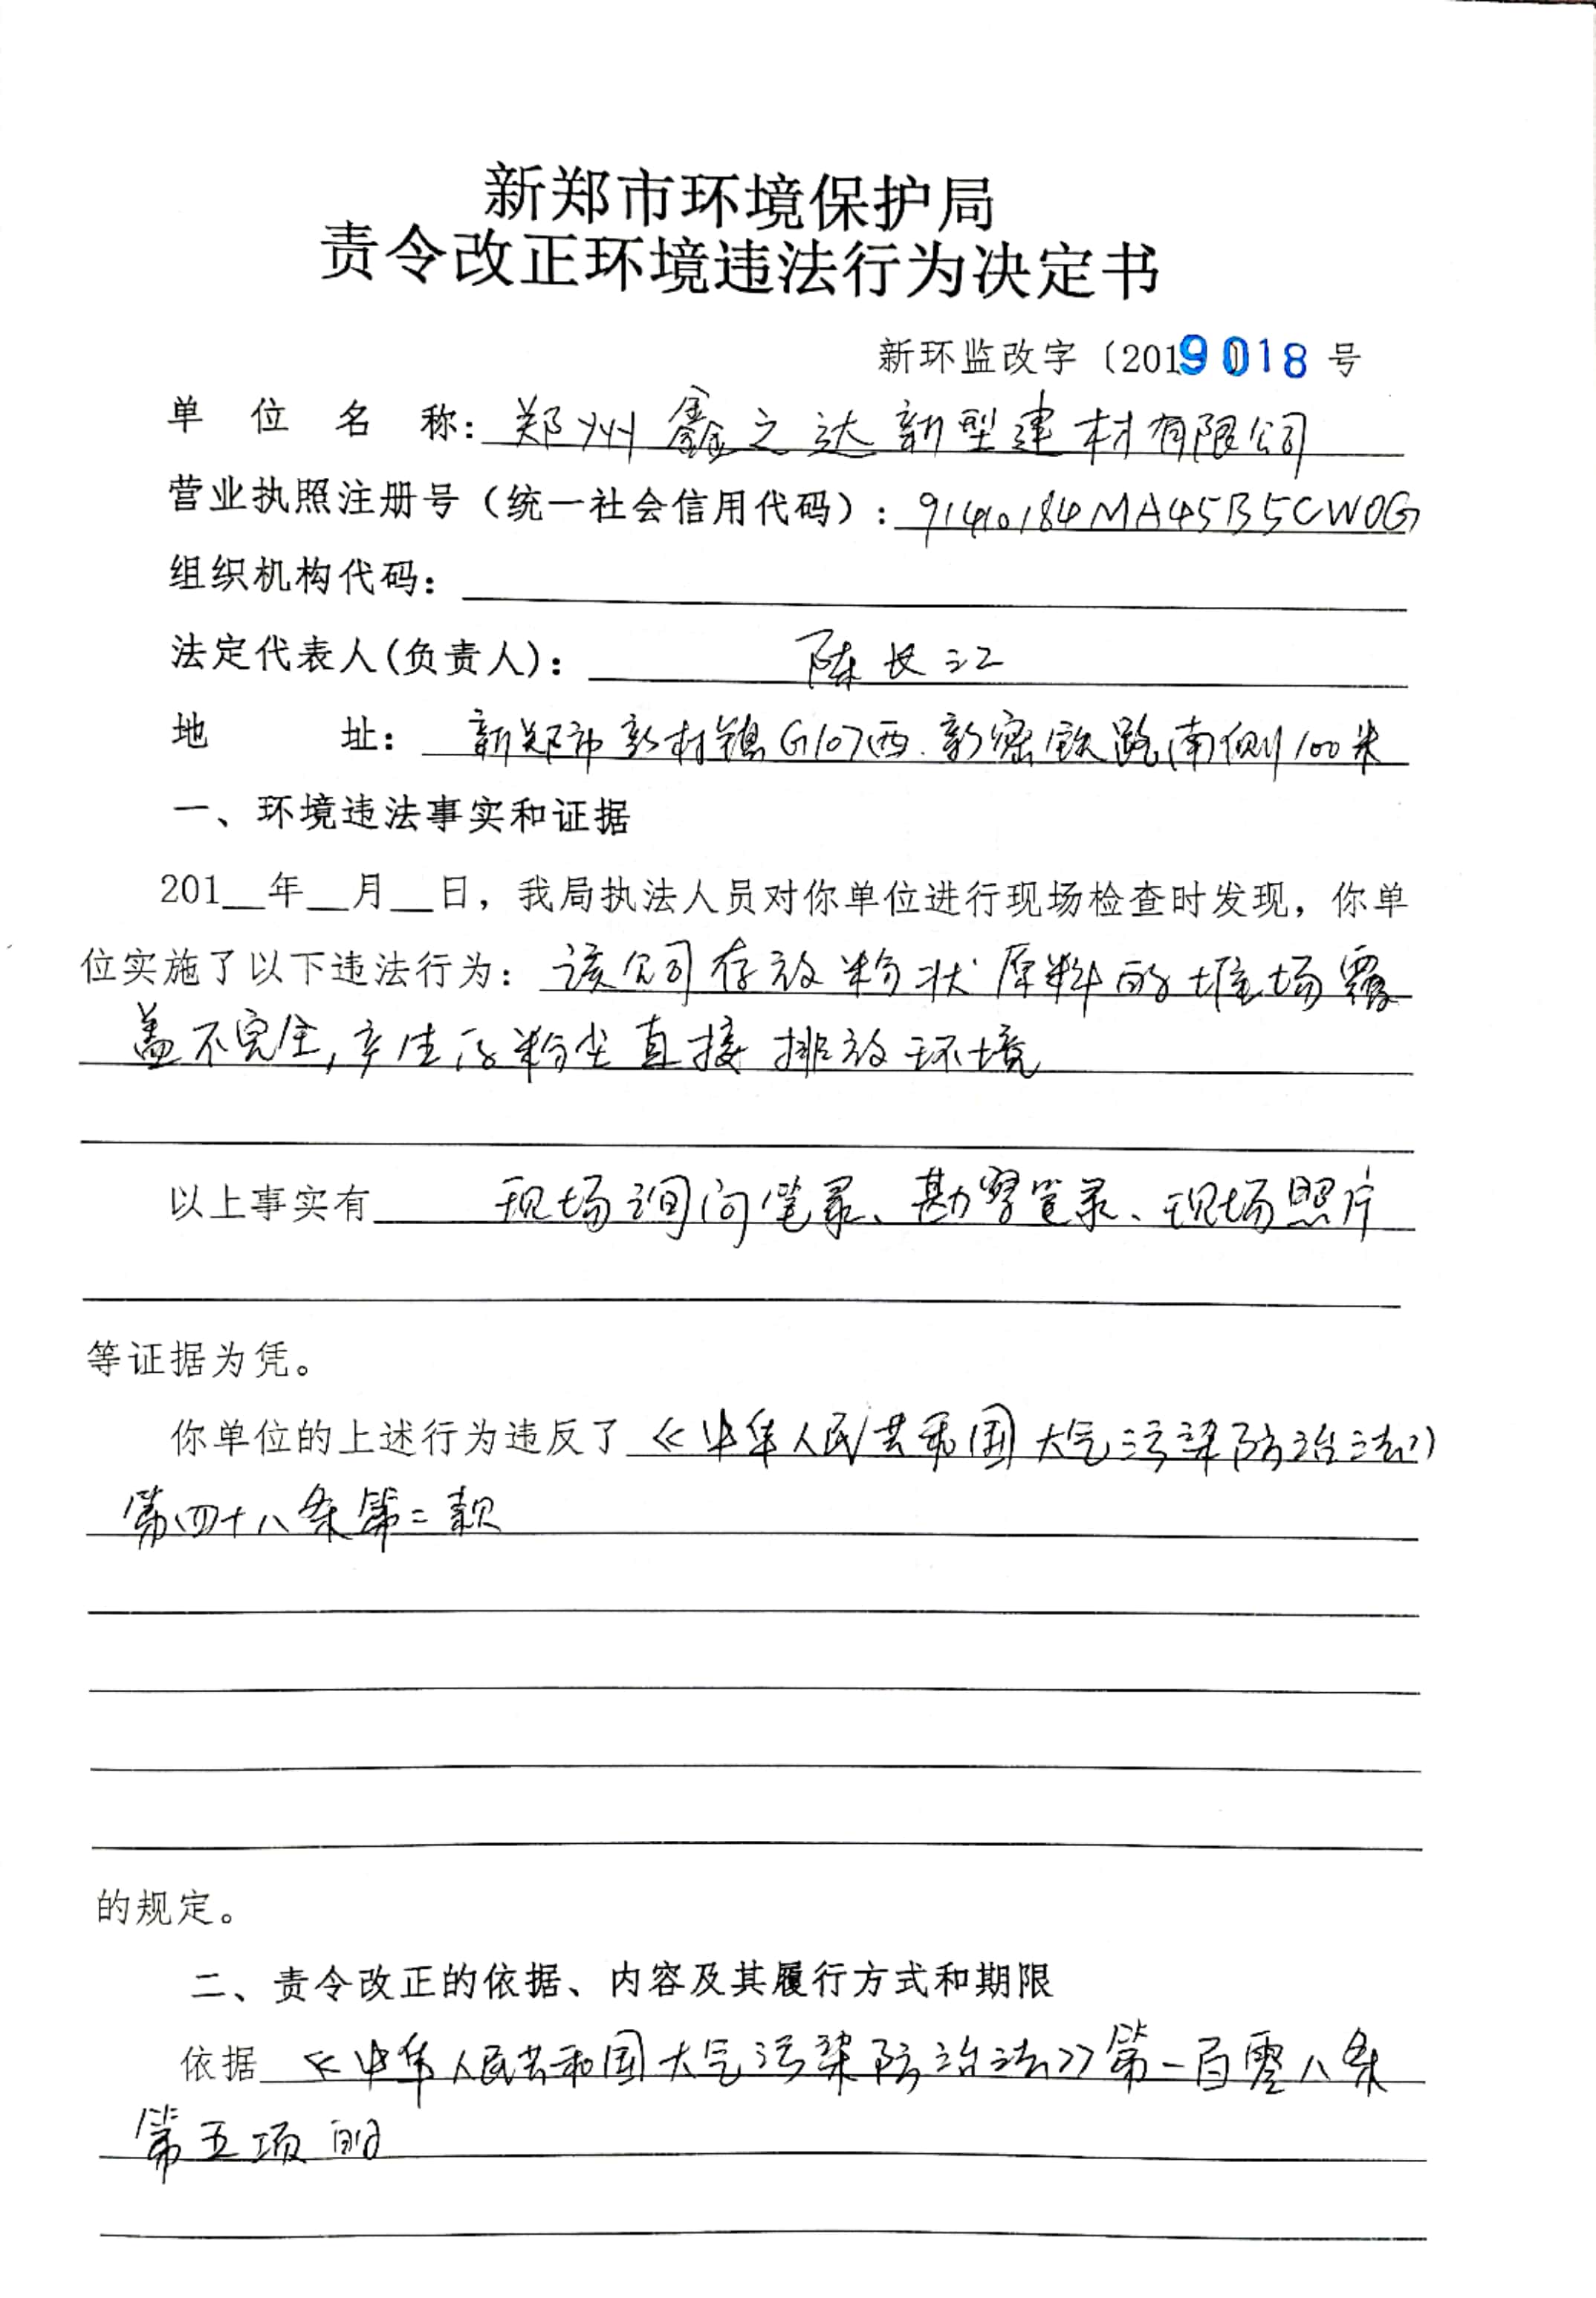 新郑市环境保护局
责令改正环境违法行为决定书
新环监改字〔2019 018 号
单位名称：郑州鑫之达新型建材有限公司
营业执照注册号（统一社会信用代码）：91410184MA45B5CW0G
组织机构代码：
法定代表人(负责人)：陈长江
地址：新郑市新村镇G107西.新密铁路南侧100米
一、环境违法事实和证据
201__年__月__日，我局执法人员对你单位进行现场检查时发现，你单
位实施了以下违法行为：该公司存放粉状原料的堆场覆
盖不完全,产生的粉尘直接排放环境
以上事实有 现场询问笔录、勘察笔录、现场照片
等证据为凭。
你单位的上述行为违反了《中华人民共和国大气污染防治法》
第四十八条第二款
的规定。
二、责令改正的依据、内容及其履行方式和期限
依据《中华人民共和国大气污染防治法》第一百零八条
第五项的